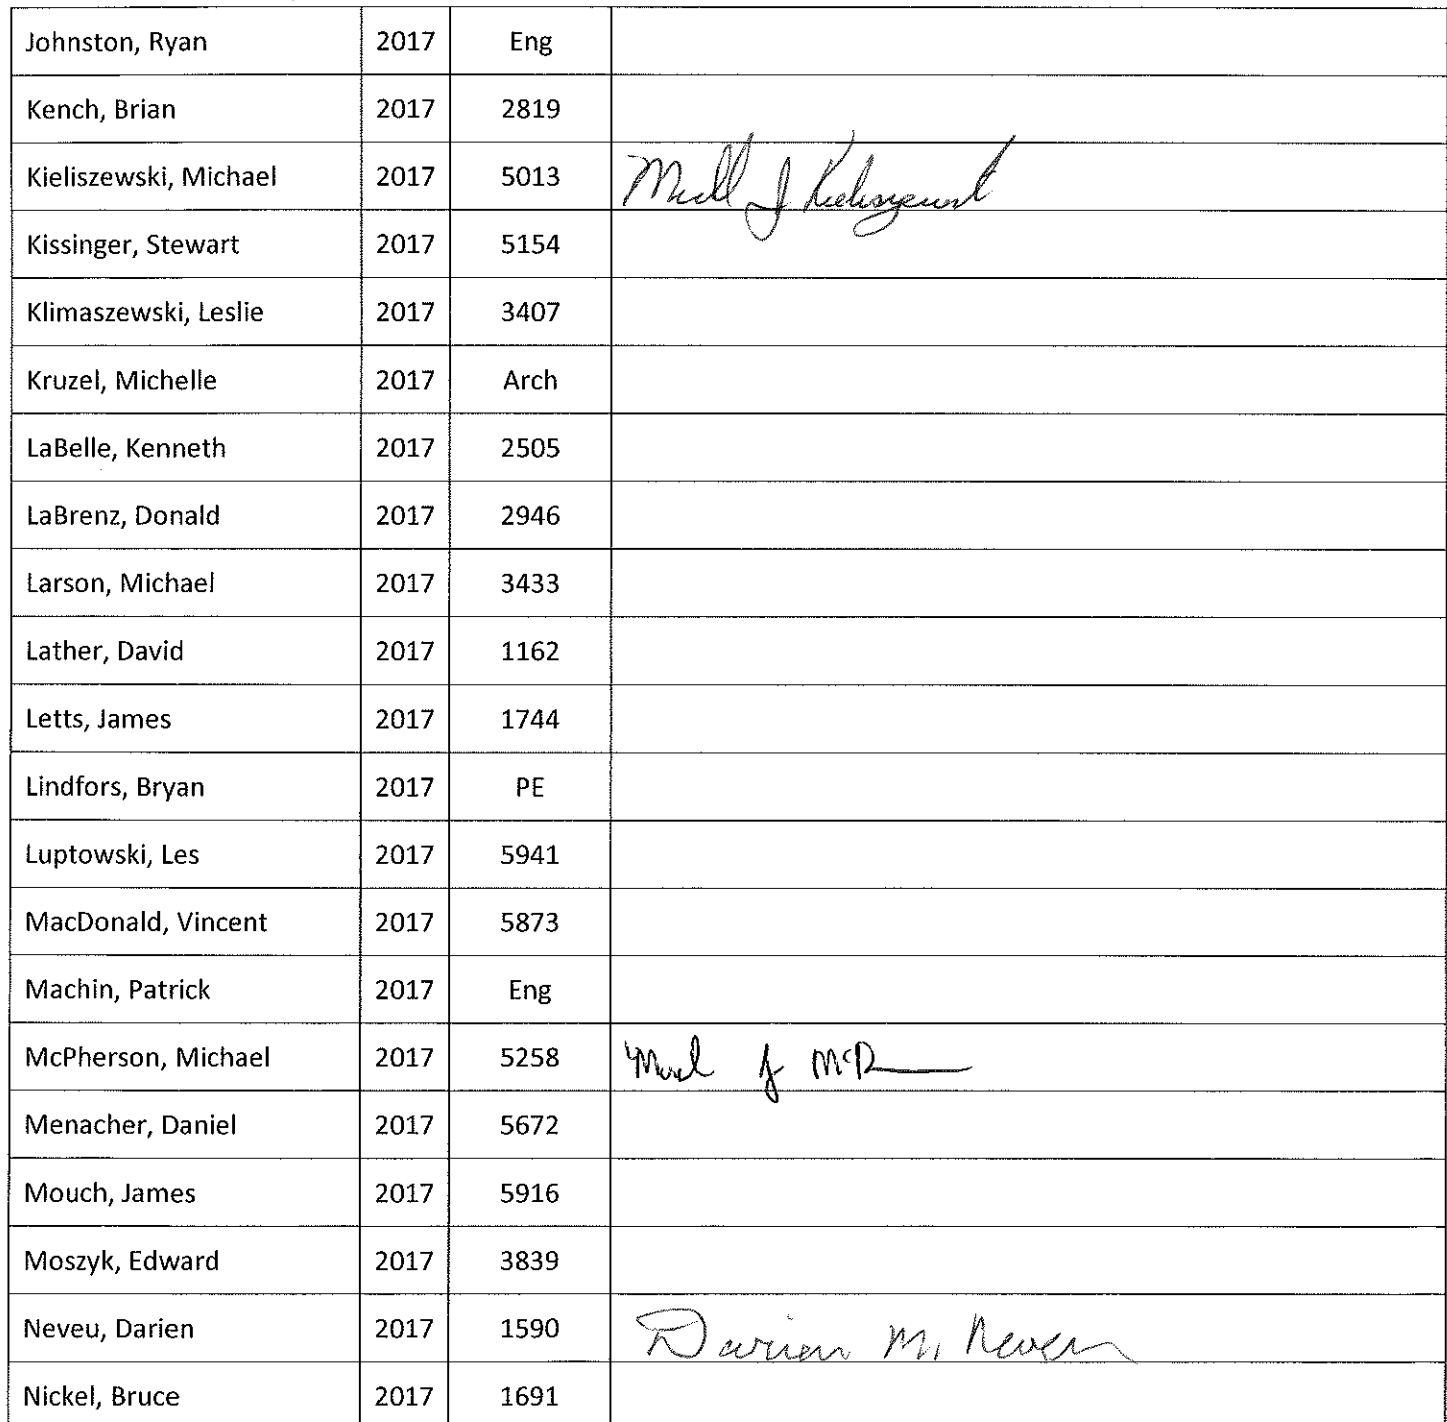 Johnston, Ryan 2017 Eng
Kench, Brian 2017 2819
Kieliszewski, Michael 2017 5013 Michael J Kieliszewski
Kissinger, Stewart 2017 5154
Klimaszewski, Leslie 2017 3407
Kruzel, Michelle 2017 Arch
LaBelle, Kenneth 2017 2505
LaBrenz, Donald 2017 2946
Larson, Michael 2017 3433
Lather, David 2017 1162
Letts, James 2017 1744
Lindfors, Bryan 2017 PE
Luptowski, Les 2017 5941
MacDonald, Vincent 2017 5873
Machin, Patrick 2017 Eng
McPherson, Michael 2017 5258
Menacher, Daniel 2017 5672
Mouch, James 2017 5916
Moszyk, Edward 2017 3839
Neveu, Darien 2017 1590 Darien M. Neveu
Nickel, Bruce 2017 1691